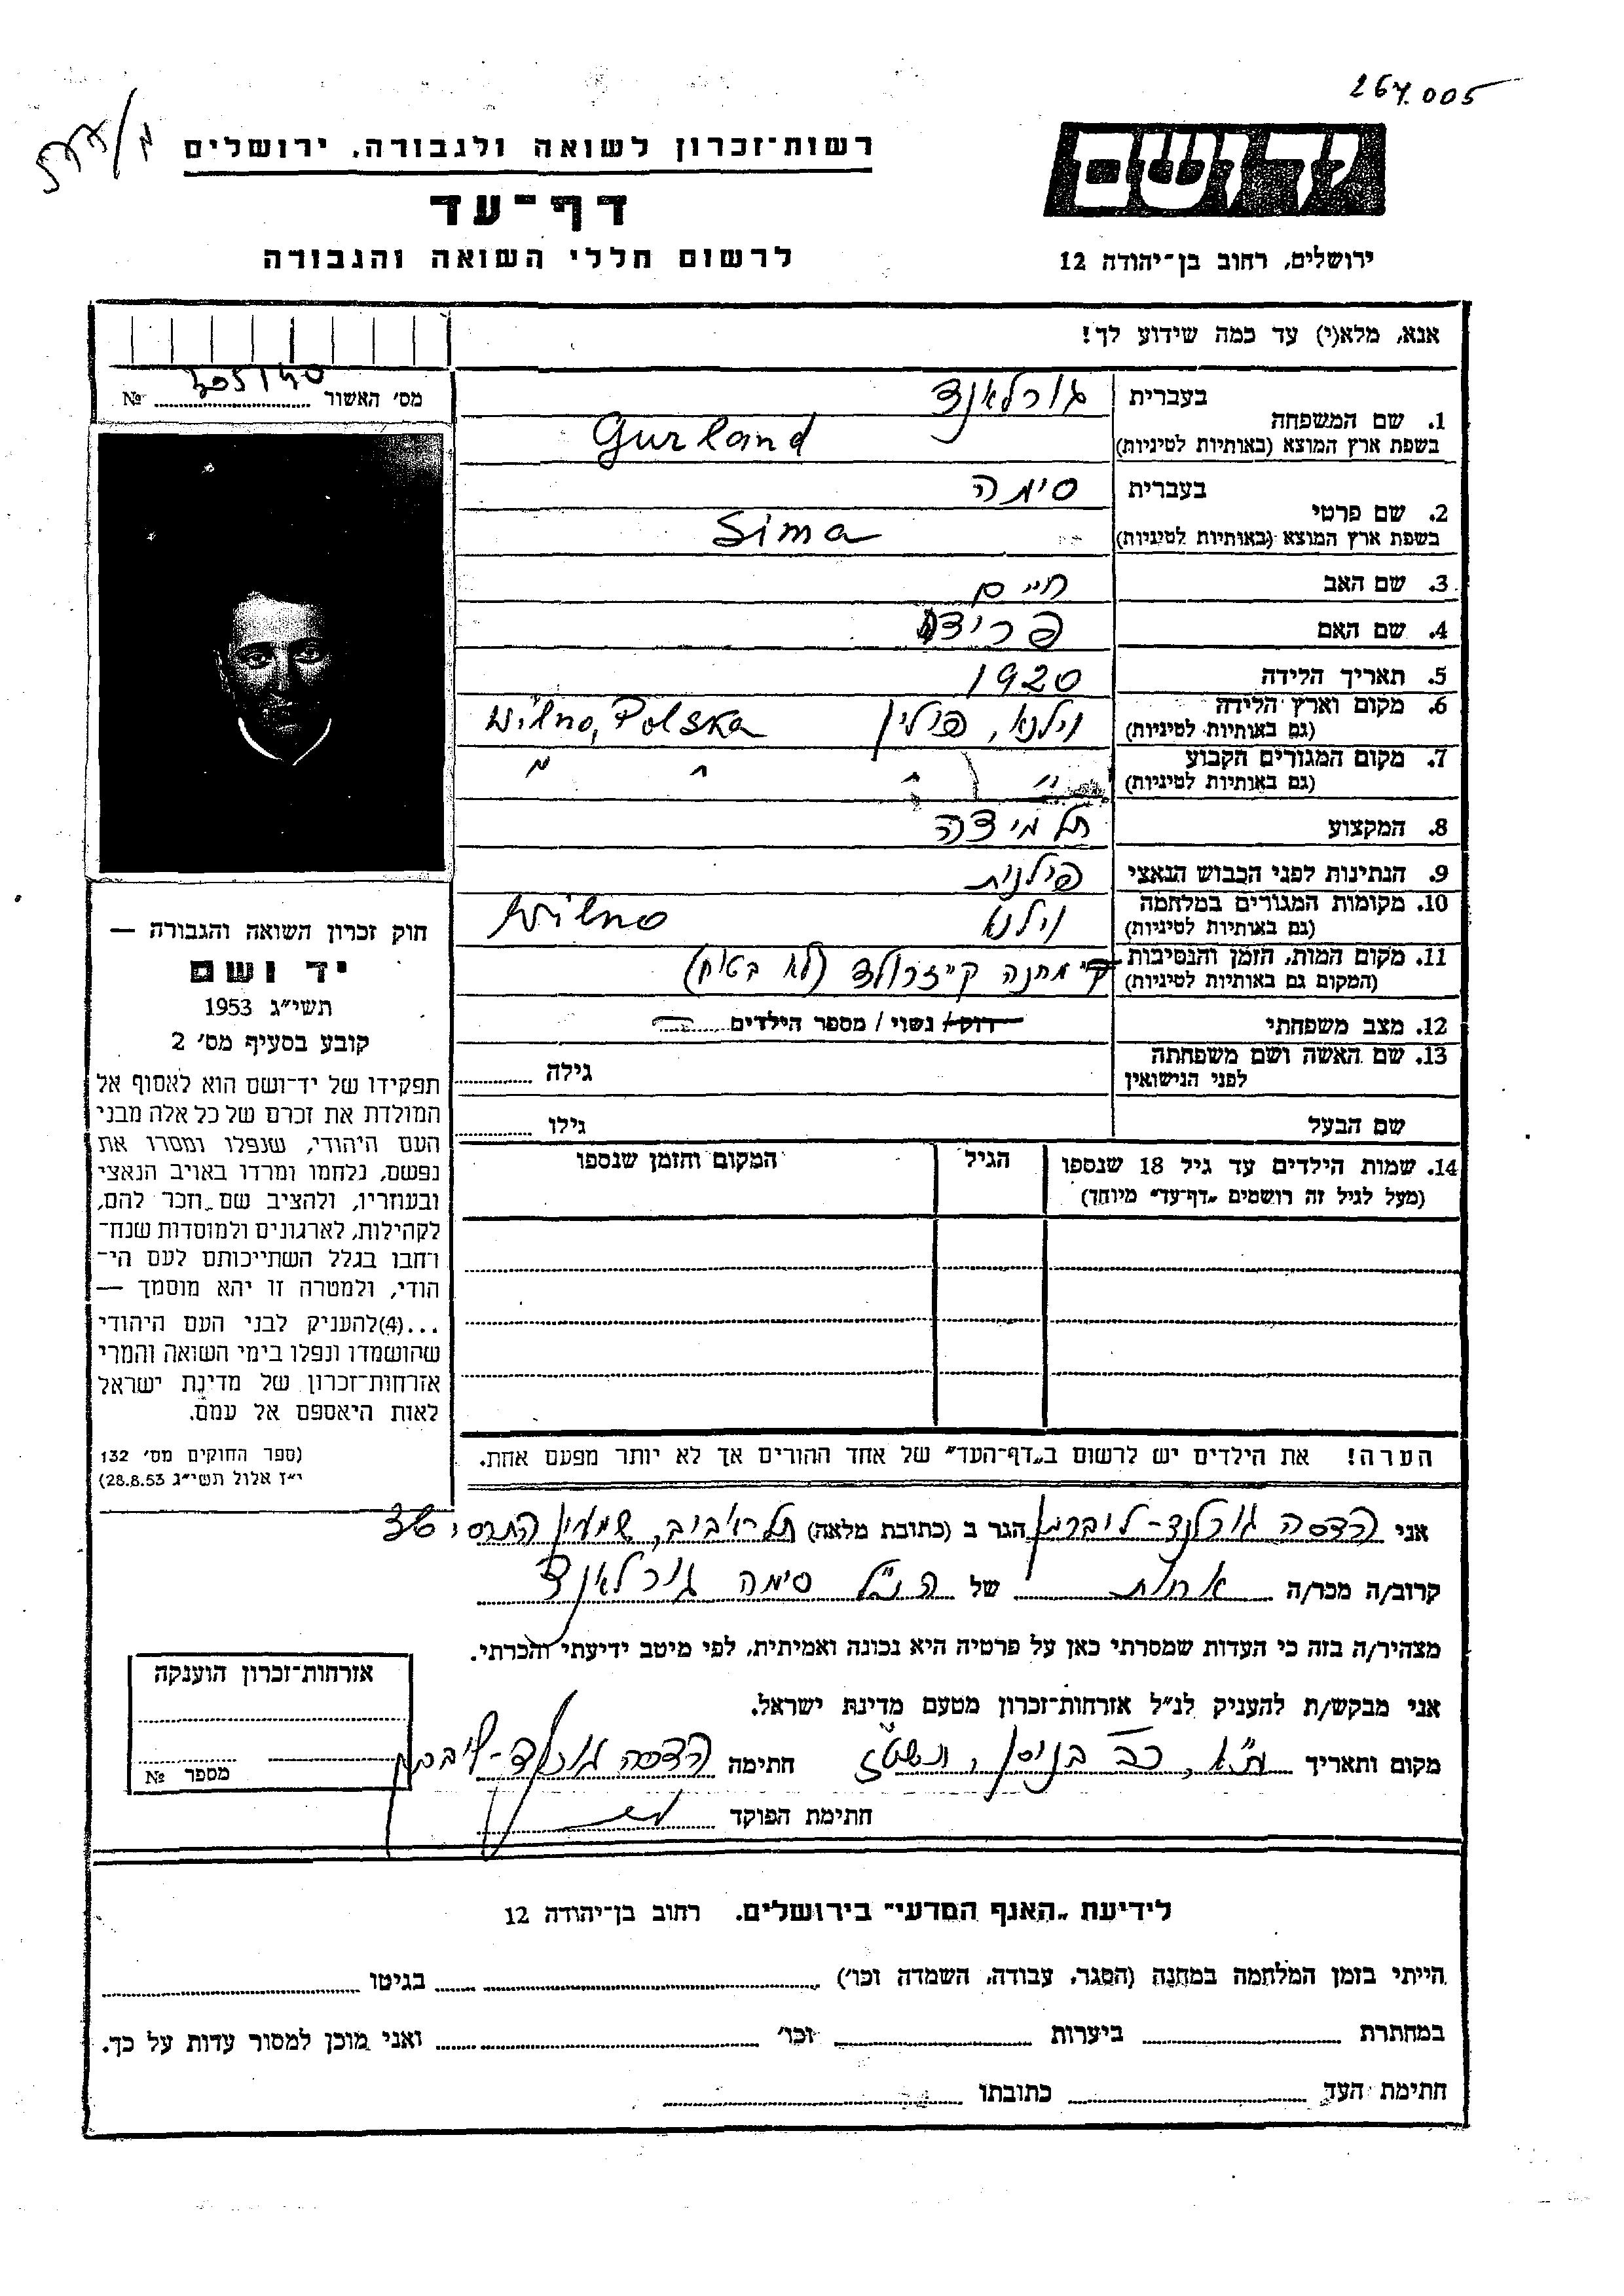 267.005
רשות־זכרון לשואה ולגבורה, ירושלים
דף־עד
לרשום חללי השואה והגבורה
יד ושם
ירושלים, רחוב בן־יהודה 12
אנא, מלא(י) עד כמה שידוע לך!
מס' האשור № 305140
1. שם המשפחה
בעברית גורלאנד
בשפת ארץ המוצא (באותיות לטיניות) Gurland
2. שם פרטי
בעברית סימה
בשפת ארץ המוצא (באותיות לטיניות) Sima
3. שם האב חיים
4. שם האם פרידה
5. תאריך הלידה 1920
6. מקום וארץ הלידה וילנא, פולין Wilno, Polska
(גם באותיות לטיניות)
7. מקום המגורים הקבוע " " " "
(גם באותיות לטיניות)
8. המקצוע תלמידה
9. הנתינות לפני הכבוש הנאצי פולנית
10. מקומות המגורים במלחמה וילנא Wilno
(גם באותיות לטיניות)
11. מקום המות, הזמן והנסיבות מחנה קייזרולד (לא בטוח)
(המקום גם באותיות לטיניות)
12. מצב משפחתי רווק / נשוי / מספר הילדים
13. שם האשה ושם משפחתה
לפני הנישואין
גילה
שם הבעל
גילו
14. שמות הילדים עד גיל 18 שנספו
(מעל לגיל זה רושמים „דף־עד" מיוחד)
הגיל
המקום והזמן שנספו
חוק זכרון השואה והגבורה —
יד ושם
תשי״ג 1953
קובע בסעיף מס' 2
תפקידו של יד־ושם הוא לאסוף אל
המולדת את זכרם של כל אלה מבני
העם היהודי, שנפלו ומסרו את
נפשם, נלחמו ומרדו באויב הנאצי
ובעוזריו, ולהציב שם וזכר להם,
לקהילות, לארגונים ולמוסדות שנח־
רחבו בגלל השתייכותם לעם הי־
הודי, ולמטרה זו יהא מוסמך —
...(4)להעניק לבני העם היהודי
שהושמדו ונפלו בימי השואה והמרי
אזרחות־זכרון של מדינת ישראל
לאות היאספם אל עמם.
(ספר החוקים מס' 132
י״ז אלול תשי״ג 28.8.53)
הערה! את הילדים יש לרשום ב„דף־העד" של אחד ההורים אך לא יותר מפעם אחת.
אני הדסה גורלנד-ליברמן הגר ב (כתובת מלאה) תל אביב, שמעון התרסי
קרוב/ה מכר/ה אחות של הנ״ל סימה גורלאנד
מצהיר/ה בזה כי העדות שמסרתי כאן על פרטיה היא נכונה ואמיתית, לפי מיטב ידיעתי והכרתי.
אני מבקש/ת להעניק לנ״ל אזרחות־זכרון מטעם מדינת ישראל.
מקום ותאריך ת״א, כב בניסן, תשט״ז חתימה הדסה גורלנד-ליברמן
חתימת הפוקד
אזרחות־זכרון הוענקה
מספר №
לידיעת „האגף המדעי" בירושלים. רחוב בן־יהודה 12
הייתי בזמן המלחמה במחנה (הסגר, עבודה, השמדה וכו') בגיטו
במחתרת ביערות וכו' ואני מוכן למסור עדות על כך.
חתימת העד כתובתו